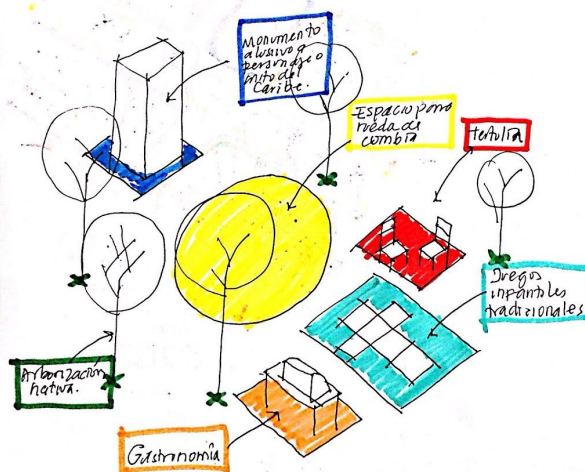 Monumento
alusivo a
personaje o
mito del
Caribe.
Espacio para
rueda de
cumbia
tertulia
Juegos
infantiles
tradizionales
Arborización
nativa.
Gastronomía